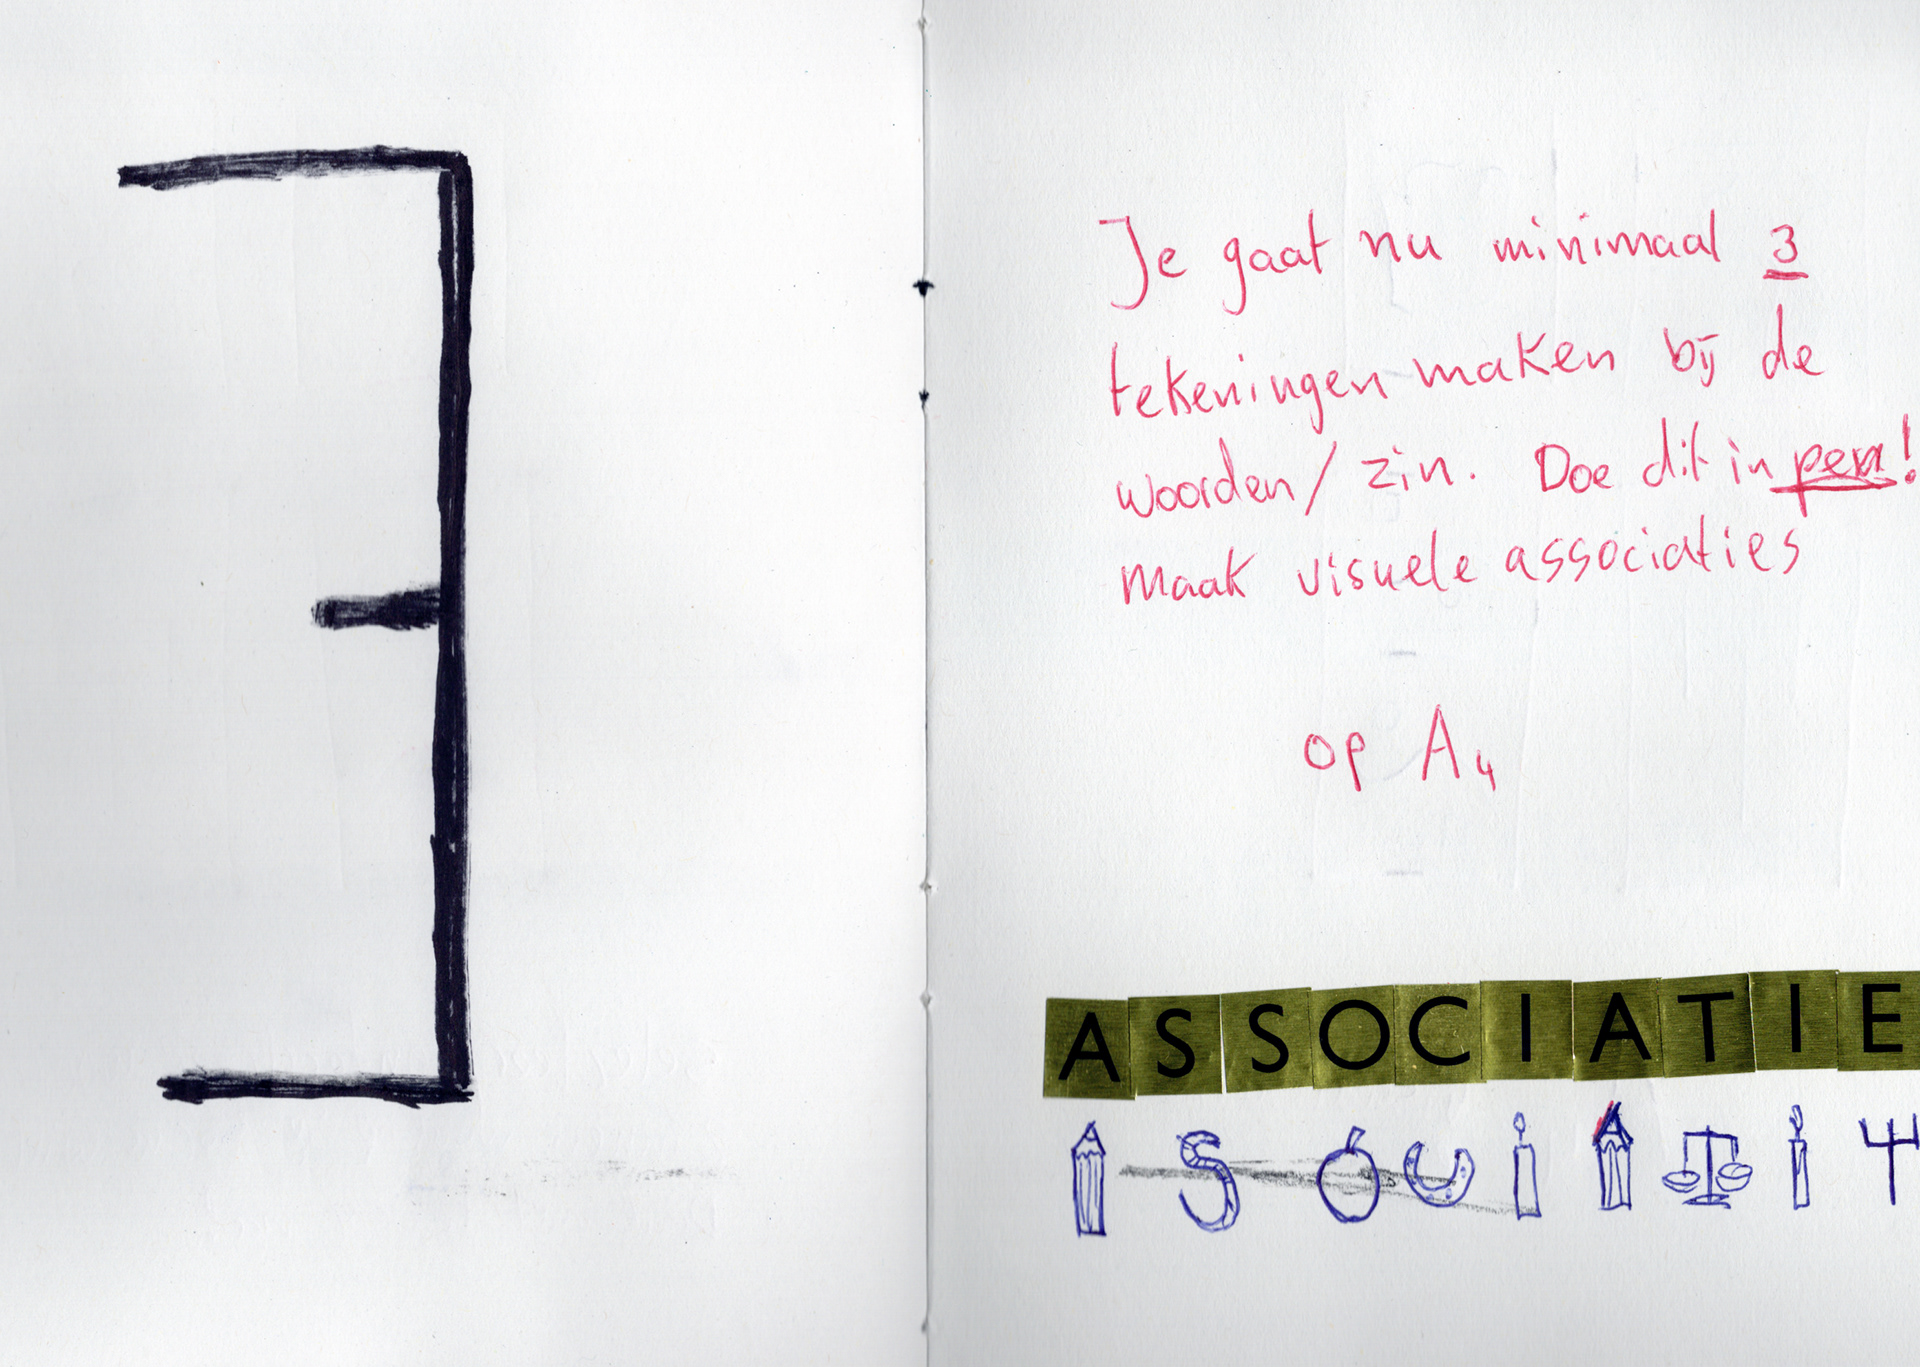 Je gaat nu minimaal 3
tekeningen maken bij de
woorden/ zin. Doe dit in pen!
Maak visuele associaties
op A4
ASSOCIATIE